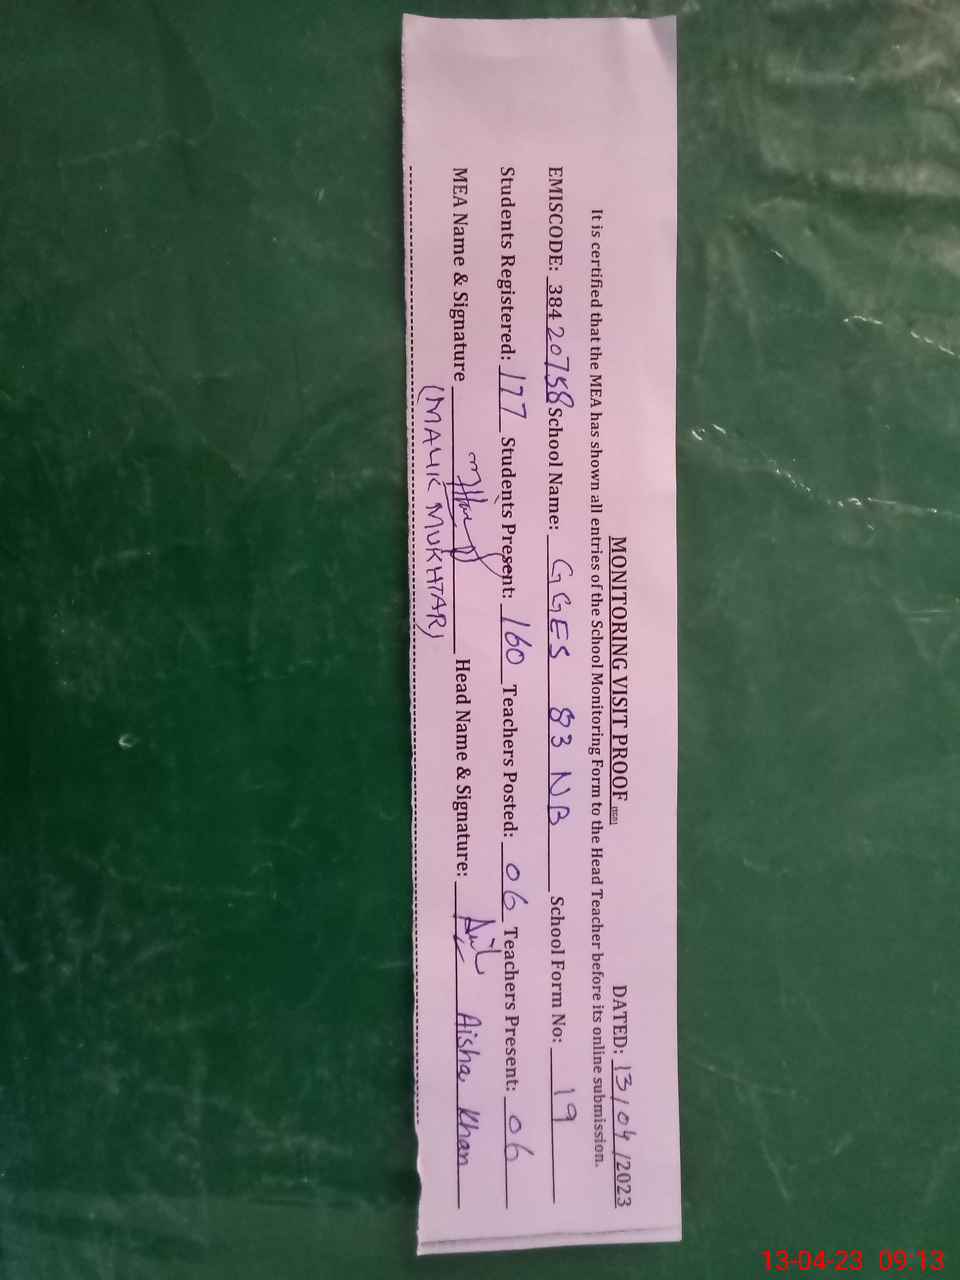 MONITORING VISIT PROOF DATED: 13/04/2023
It is certified that the MEA has shown all entries of the School Monitoring Form to the Head Teacher before its online submission.
EMISCODE: 38420758 School Name: GGES 83 NB School Form No: 19
Students Registered: 177 Students Present: 160 Teachers Posted: 06 Teachers Present: 06
MEA Name & Signature Head Name & Signature: Aisha Khan
(MALIK MUKHTAR)
13-04-23 09:13